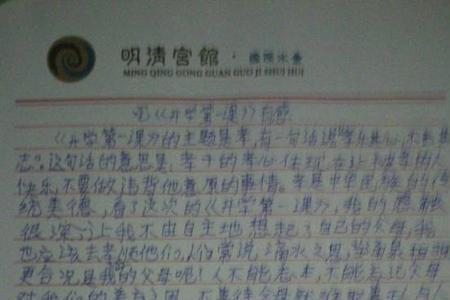 明清宫館·國際水會
MING QING GONG GUAN GUO JI SHUI HUI
《开学第一课》有感
《开学第一课》的主题是孝,有一句话说"孝子
志"。这句话的意思是,孝子的孝心体现在让
快乐,不要做违背他意愿的事情。孝是中华民族的传
统美德,看了这次的《开学第一课》,我的感触
很深,让我不由自主地想起了自己的父母,我
也应该去孝 他们。人们常说:滴水之恩,当涌泉相报
更合况是我的父母呢!人不能忘本,不能忘记父母
对我们的养育之恩